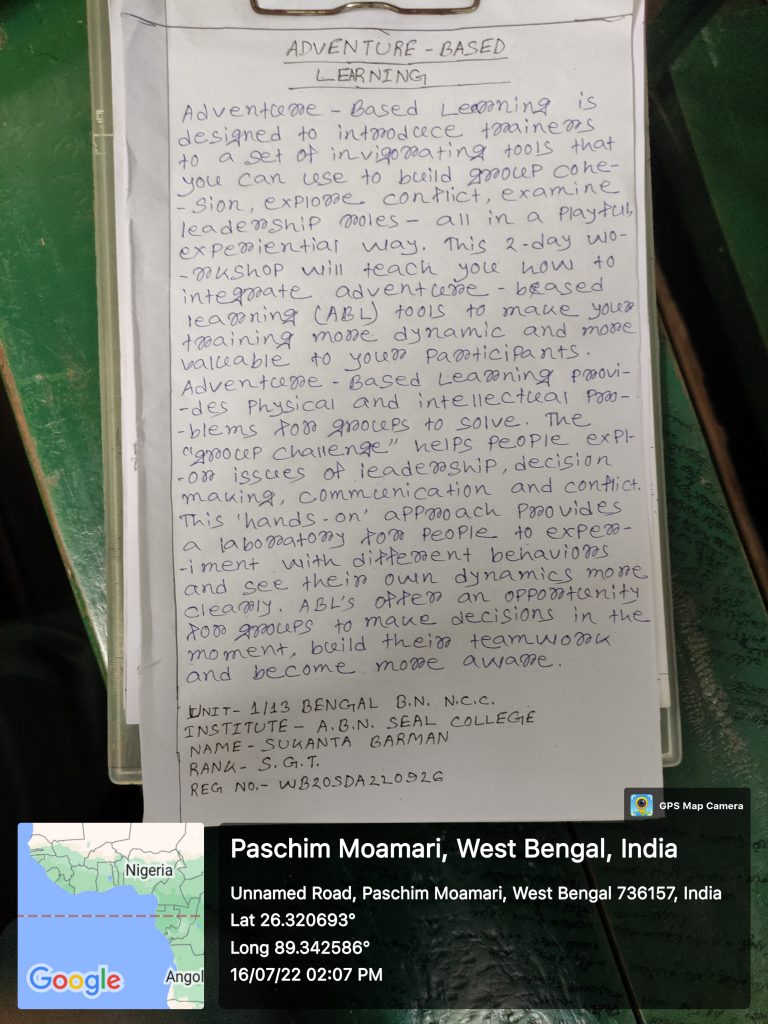 ADVENTURE - BASED
LEARNING
Adventure - Based Learning is
designed to introduce trainers
to a set of invigorating tools that
you can use to build group cohe-
-sion, explore conflict, examine
leadership roles - all in a playful,
experiential way. This 2-day wo-
-rkshop will teach you how to
integrate adventure - based
learning (ABL) tools to make your
training more dynamic and more
valuable to your participants.
Adventure - Based Learning provi-
-des physical and intellectual pro-
-blems for groups to solve. The
"group challenge" helps people expl-
-or issues of leadership, decision
making, communication and conflict.
This 'hands-on' approach provides
a laboratory for people to exper-
-iment with different behaviors
and see their own dynamics more
clearly. ABL's offer an opportunity
for groups to make decisions in the
moment, build their teamwork
and become more aware.
UNIT- 1/13 BENGAL B.N. N.C.C.
INSTITUTE - A.B.N. SEAL COLLEGE
NAME - SUKANTA BARMAN
RANK- S.G.T.
REG NO.- WB20SDA220926
GPS Map Camera
Paschim Moamari, West Bengal, India
Nigeria
Unnamed Road, Paschim Moamari, West Bengal 736157, India
Lat 26.320693°
Long 89.342586°
Google
Angol
16/07/22 02:07 PM